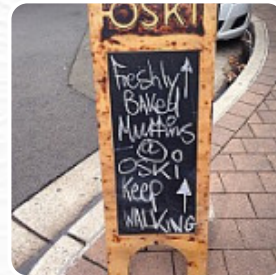 OSKI
Freshly
BAKed
Muffins
@
OSKi
Keep
WALKING